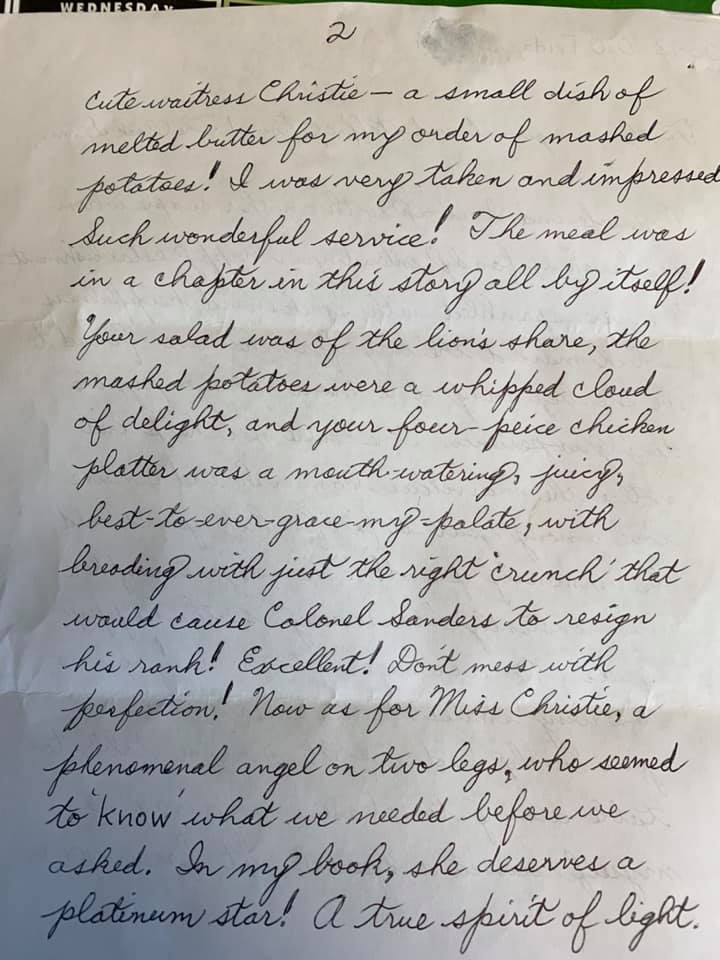 WEDNESDAY
2
cute waitress Christie — a small dish of
melted butter for my order of mashed
potatoes! I was very taken and impressed
Such wonderful service! The meal was
in a chapter in this story all by itself!
Your salad was of the lion's share, the
mashed potatoes were a whipped cloud
of delight, and your four-peice chicken
platter was a mouth-watering, juicy,
best-to-ever-grace-my-palate, with
breading with just the right 'crunch' that
would cause Colonel Sanders to resign
his rank! Excellent! Don't mess with
perfection! Now as for Miss Christie, a
phenomenal angel on two legs, who seemed
to 'know' what we needed before we
asked. In my book, she deserves a
platinum star! A true spirit of light.